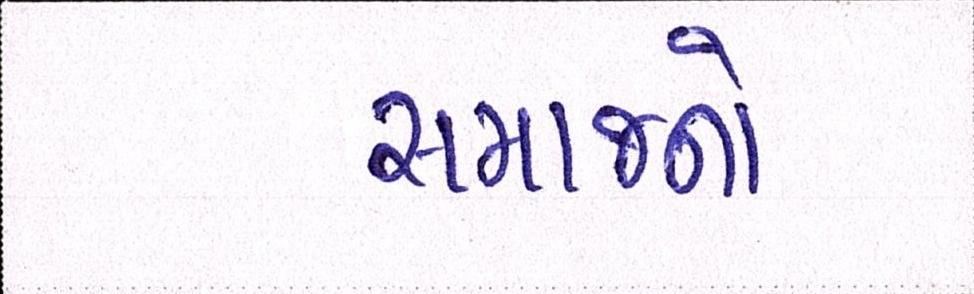 સમાજનો